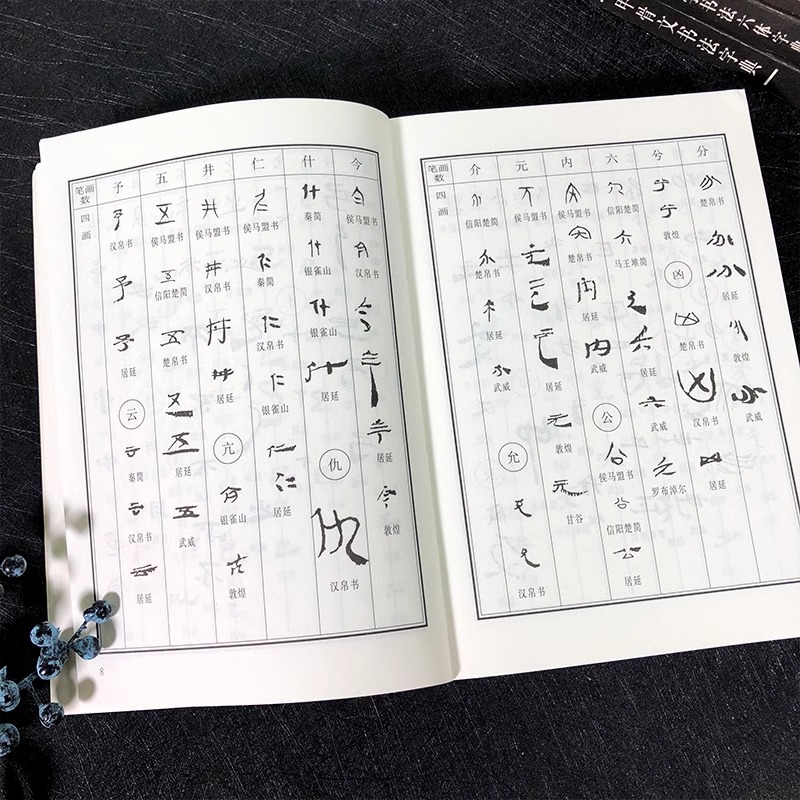 书法六体字典
甲骨文书法字典
笔画数
四画
予
汉帛书
居延
云
秦简
汉帛书
居延
五
侯马盟书
信阳楚简
楚帛书
居延
武威
井
侯马盟书
汉帛书
居延
亢
银雀山
敦煌
仁
侯马盟书
秦简
汉帛书
银雀山
居延
什
秦简
银雀山
银雀山
居延
仇
汉帛书
今
侯马盟书
汉帛书
居延
敦煌
8
笔画数
四画
介
信阳楚简
楚帛书
居延
武威
允
汉帛书
元
侯马盟书
居延
敦煌
甘谷
内
侯马盟书
楚帛书
居延
武威
公
侯马盟书
信阳楚简
居延
六
信阳楚简
马王堆简
居延
武威
罗布淖尔
兮
敦煌
凶
楚帛书
汉帛书
居延
分
楚帛书
居延
敦煌
武威